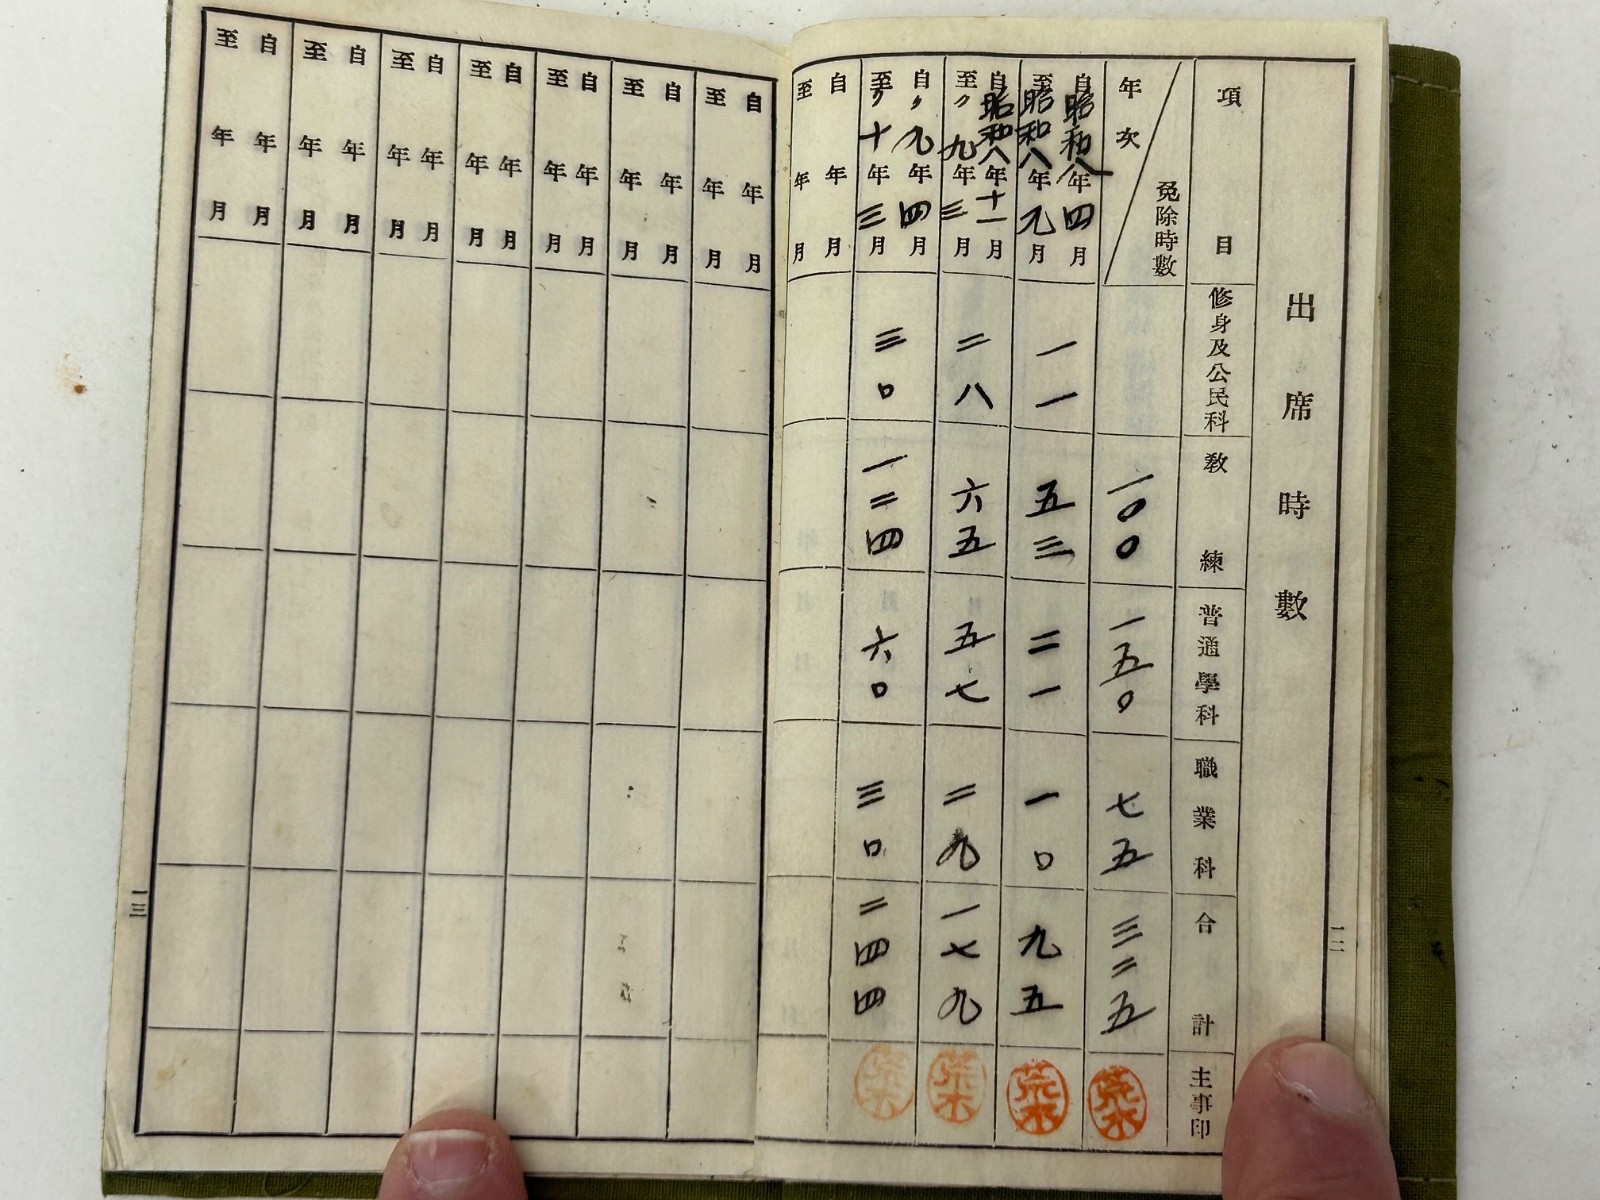 一二
出席時數
項目 修身及公民科 敎練 普通學科 職業科 合計 主事印
年次 免除時數 一〇〇 一五〇 七五 三二五 荒木
自昭和八年四月
至昭和八年九月
一一 五三 二一 一〇 九五 荒木
自昭和八年十一月
至〃九年三月
二八 六五 五七 二九 一七九 荒木
自〃九年四月
至〃十年三月
三〇 一二四 六〇 三〇 二四四 荒木
自 年 月
至 年 月
自 年 月
至 年 月
自 年 月
至 年 月
自 年 月
至 年 月
自 年 月
至 年 月
自 年 月
至 年 月
自 年 月
至 年 月
自 年 月
至 年 月
一三